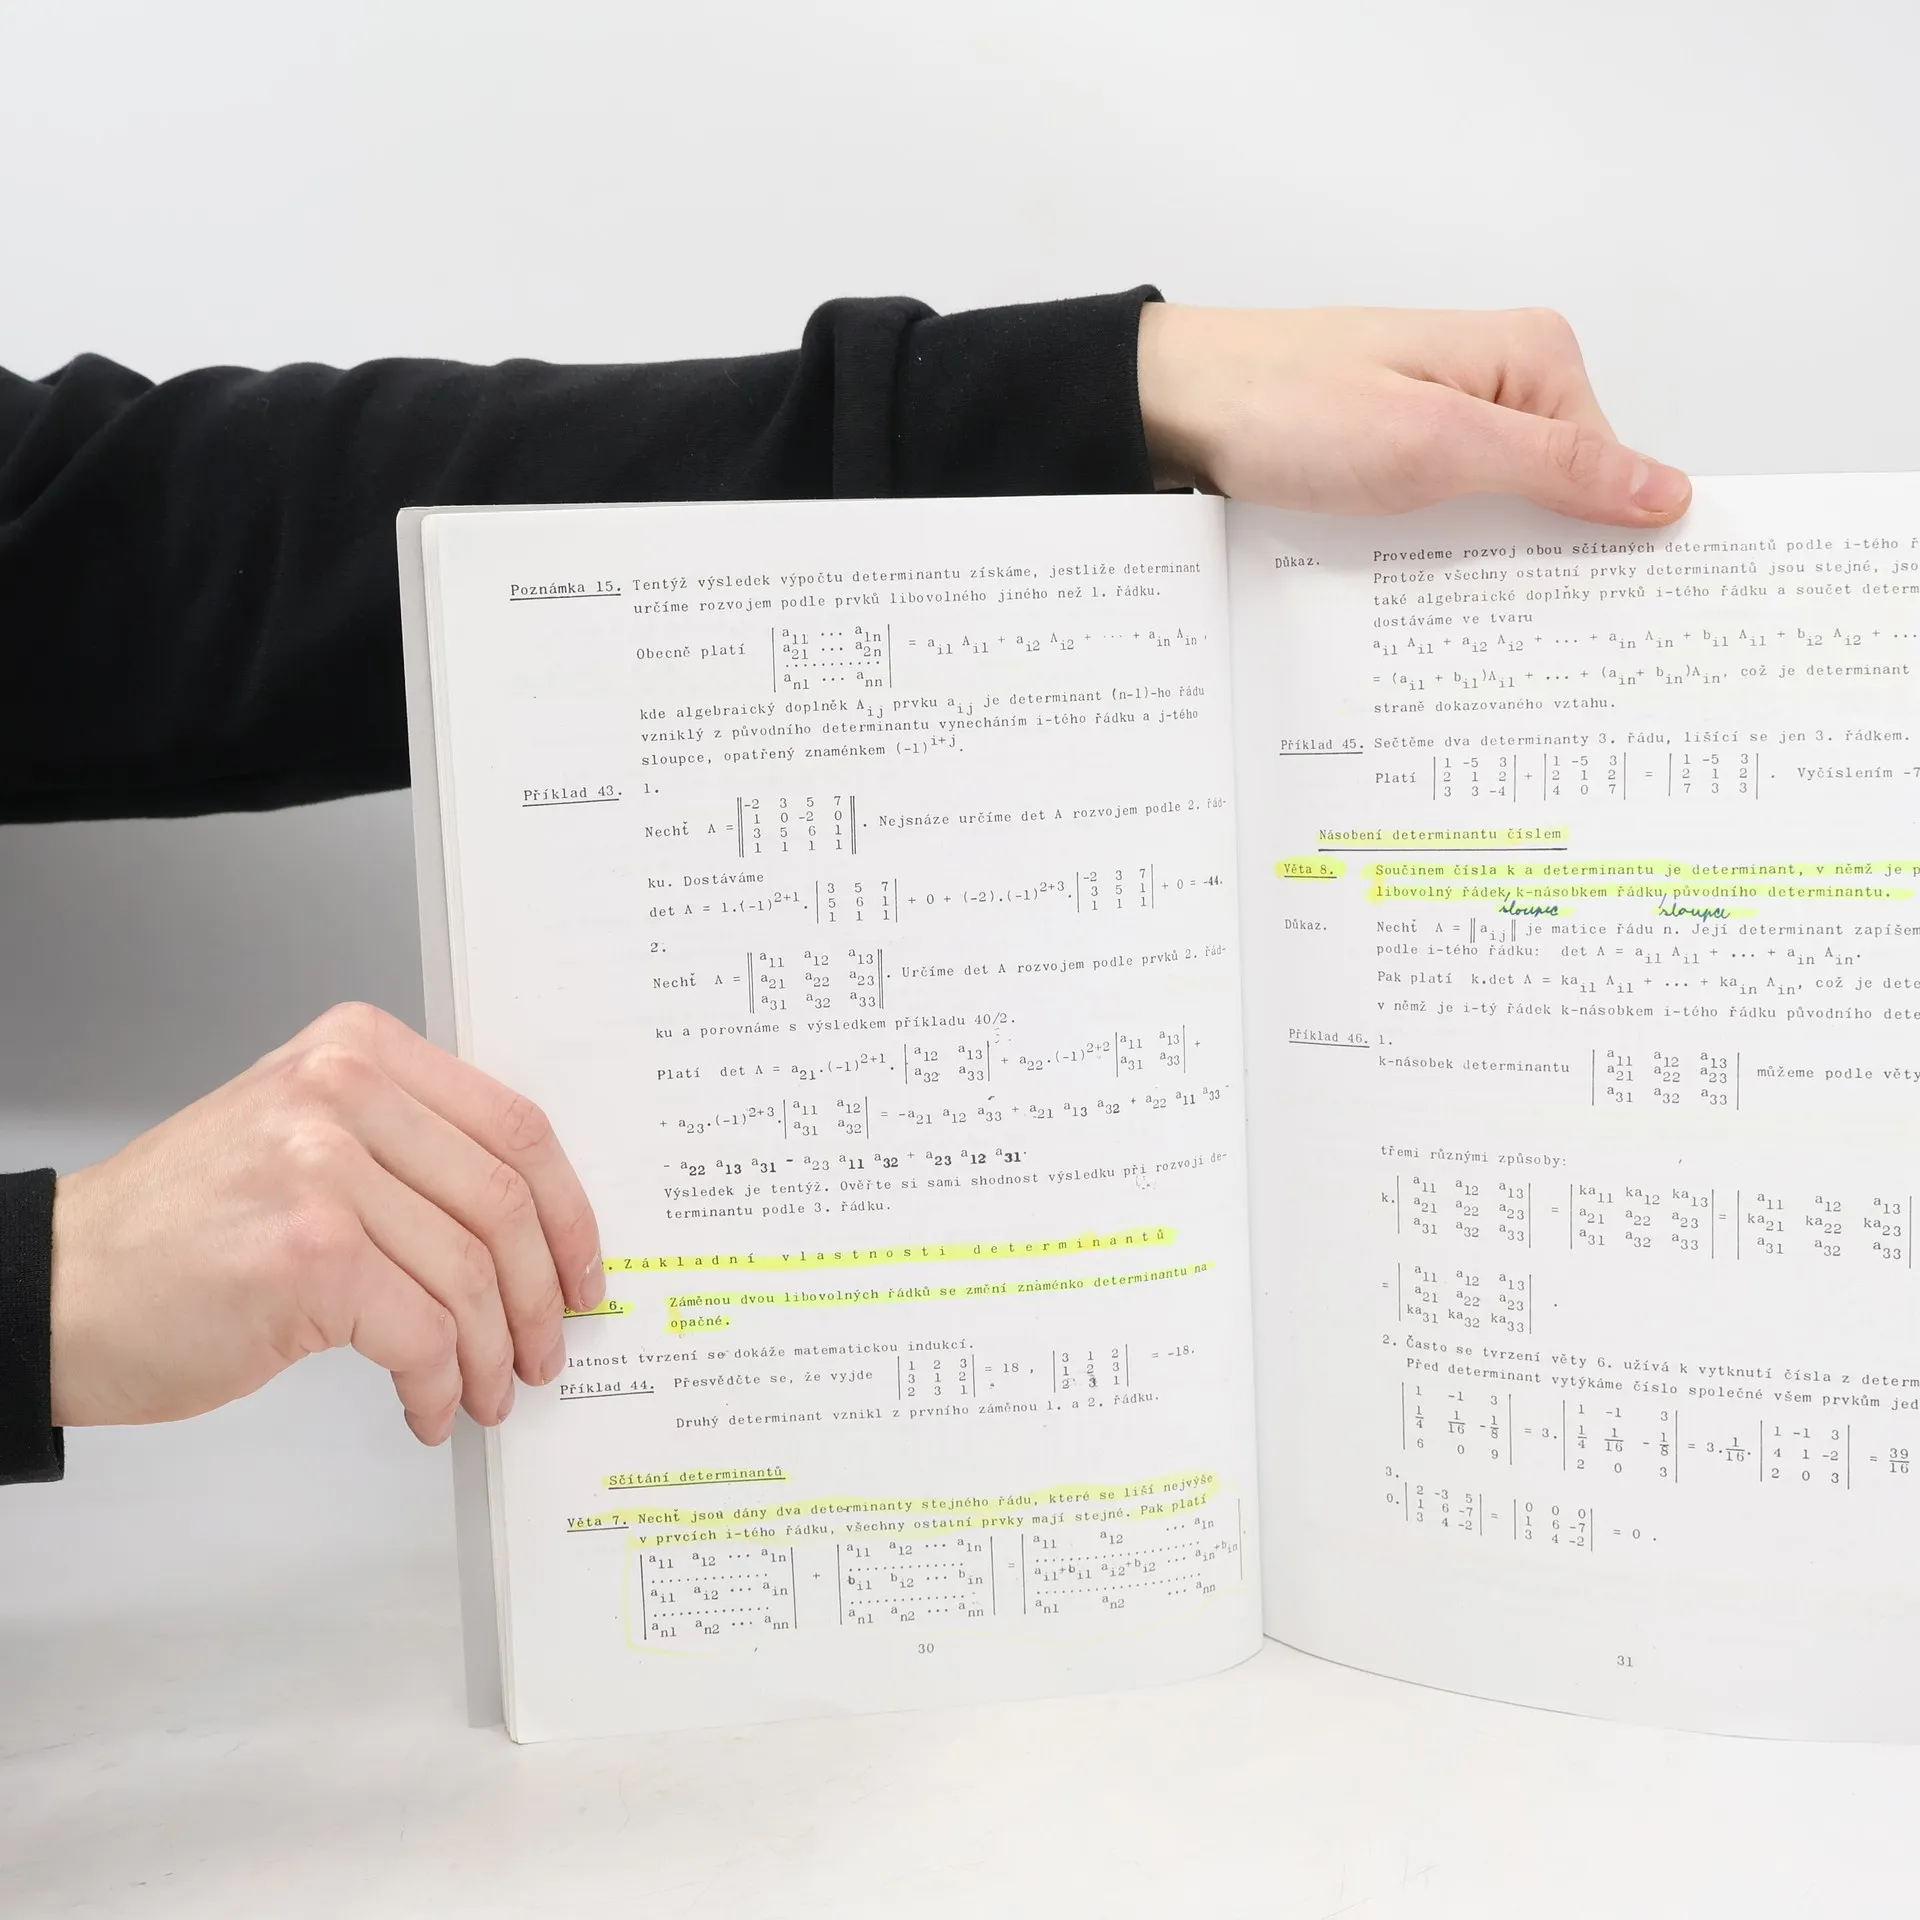 Poznámka 15. Tentýž výsledek výpočtu determinantu získáme, jestliže determinant
určíme rozvojem podle prvků libovolného jiného než 1. řádku.
Obecně platí | a11 ... a1n | = ai1 Ai1 + ai2 Ai2 + ... + ain Ain ,
| a21 ... a2n |
| ........... |
| an1 ... ann |
kde algebraický doplněk Aij prvku aij je determinant (n-1)-ho řádu
vzniklý z původního determinantu vynecháním i-tého řádku a j-tého
sloupce, opatřený znaménkem (-1)^i+j.
Příklad 43. 1.
Nechť A = || -2 3 5 7 || . Nejsnáze určíme det A rozvojem podle 2. řád-
|| 1 0 -2 0 ||
|| 3 5 6 1 ||
|| 1 1 1 1 ||
ku. Dostáváme
det A = 1.(-1)^2+1. | 3 5 7 | + 0 + (-2).(-1)^2+3. | -2 3 7 | + 0 = -44.
| 5 6 1 | | 3 5 1 |
| 1 1 1 | | 1 1 1 |
2.
Nechť A = || a11 a12 a13 || . Určíme det A rozvojem podle prvků 2. řád-
|| a21 a22 a23 ||
|| a31 a32 a33 ||
ku a porovnáme s výsledkem příkladu 40/2.
Platí det A = a21.(-1)^2+1. | a12 a13 | + a22.(-1)^2+2 | a11 a13 | +
| a32 a33 | | a31 a33 |
+ a23.(-1)^2+3. | a11 a12 | = -a21 a12 a33 + a21 a13 a32 + a22 a11 a33 -
| a31 a32 |
- a22 a13 a31 - a23 a11 a32 + a23 a12 a31.
Výsledek je tentýž. Ověřte si sami shodnost výsledku při rozvoji de-
terminantu podle 3. řádku.
. Základní vlastnosti determinantů
6. Záměnou dvou libovolných řádků se změní znaménko determinantu na
opačné.
latnost tvrzení se dokáže matematickou indukcí.
Příklad 44. Přesvědčte se, že vyjde | 1 2 3 | = 18 , | 3 1 2 | = -18.
| 3 1 2 | | 1 2 3 |
| 2 3 1 | | 2 3 1 |
Druhý determinant vznikl z prvního záměnou 1. a 2. řádku.
Sčítání determinantů
Věta 7. Nechť jsou dány dva determinanty stejného řádu, které se liší nejvýše
v prvcích i-tého řádku, všechny ostatní prvky mají stejné. Pak platí
| a11 a12 ... a1n | + | a11 a12 ... a1n | = | a11 a12 ... a1n |
| .............. | | .............. | | .................... |
| ai1 ai2 ... ain | | bi1 bi2 ... bin | | ai1+bi1 ai2+bi2 ... ain+bin |
| .............. | | .............. | | .................... |
| an1 an2 ... ann | | an1 an2 ... ann | | an1 an2 ... ann |
30
Důkaz. Provedeme rozvoj obou sčítaných determinantů podle i-tého ř
Protože všechny ostatní prvky determinantů jsou stejné, jso
také algebraické doplňky prvků i-tého řádku a součet determ
dostáváme ve tvaru
ai1 Ai1 + ai2 Ai2 + ... + ain Ain + bi1 Ai1 + bi2 Ai2 + ...
= (ai1 + bi1)Ai1 + ... + (ain+ bin)Ain, což je determinant
straně dokazovaného vztahu.
Příklad 45. Sečtěme dva determinanty 3. řádu, lišící se jen 3. řádkem.
Platí | 1 -5 3 | + | 1 -5 3 | = | 1 -5 3 | . Vyčíslením -7
| 2 1 2 | | 2 1 2 | | 2 1 2 |
| 3 3 -4 | | 4 0 7 | | 7 3 3 |
Násobení determinantu číslem
Věta 8. Součinem čísla k a determinantu je determinant, v němž je p
libovolný řádek, k-násobkem řádku, původního determinantu.
sloupec sloupce
Důkaz. Nechť A = || aij || je matice řádu n. Její determinant zapíšem
podle i-tého řádku: det A = ai1 Ai1 + ... + ain Ain.
Pak platí k.det A = kai1 Ai1 + ... + kain Ain, což je dete
v němž je i-tý řádek k-násobkem i-tého řádku původního dete
Příklad 46. 1.
k-násobek determinantu | a11 a12 a13 | můžeme podle věty
| a21 a22 a23 |
| a31 a32 a33 |
třemi různými způsoby:
k. | a11 a12 a13 | = | ka11 ka12 ka13 | = | a11 a12 a13 |
| a21 a22 a23 | | a21 a22 a23 | | ka21 ka22 ka23 |
| a31 a32 a33 | | a31 a32 a33 | | a31 a32 a33 |
= | a11 a12 a13 | .
| a21 a22 a23 |
| ka31 ka32 ka33 |
2. Často se tvrzení věty 6. užívá k vytknutí čísla z determ
Před determinant vytýkáme číslo společné všem prvkům jed
| 1 -1 3 | = 3. | 1 -1 3 | = 3.1/16. | 1 -1 3 | = 39/16
| 1/4 1/16 -1/8 | | 1/4 1/16 -1/8 | | 4 1 -2 |
| 6 0 9 | | 2 0 3 | | 2 0 3 |
3.
0. | 2 -3 5 | = | 0 0 0 | = 0 .
| 1 6 -7 | | 1 6 -7 |
| 3 4 -2 | | 3 4 -2 |
31